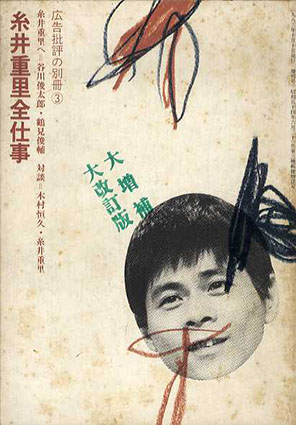 広告批評の別冊③
糸井重里へ＝谷川俊太郎・鶴見俊輔　対談＝木村恒久・糸井重里
糸井重里全仕事
大増補
大改訂版